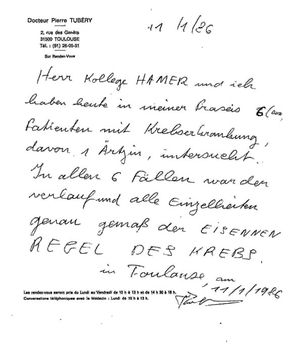 Docteur Pierre TUBÉRY
2, rue des Genêts
31500 TOULOUSE
Tél. : (61)
Sur Rendez-Vous
11/1/86
Herr Kollege HAMER und ich
haben heute in meiner Praxis 6
Patienten mit Krebserkrankung,
davon 1 Ärztin, untersucht.
In allen 6 Fällen war der
verlauf und alle Einzelheiten
genau gemäß der EISENNEN
REGEL DES KREBS.
in Toulouse, am
11/1/1986
Les rendez-vous seront pris du Lundi au Vendredi de 10 h à 12 h et de 14 h 30 à 18 h.
Conversations téléphoniques avec le Médecin : Lundi de 10 h à 12 h.